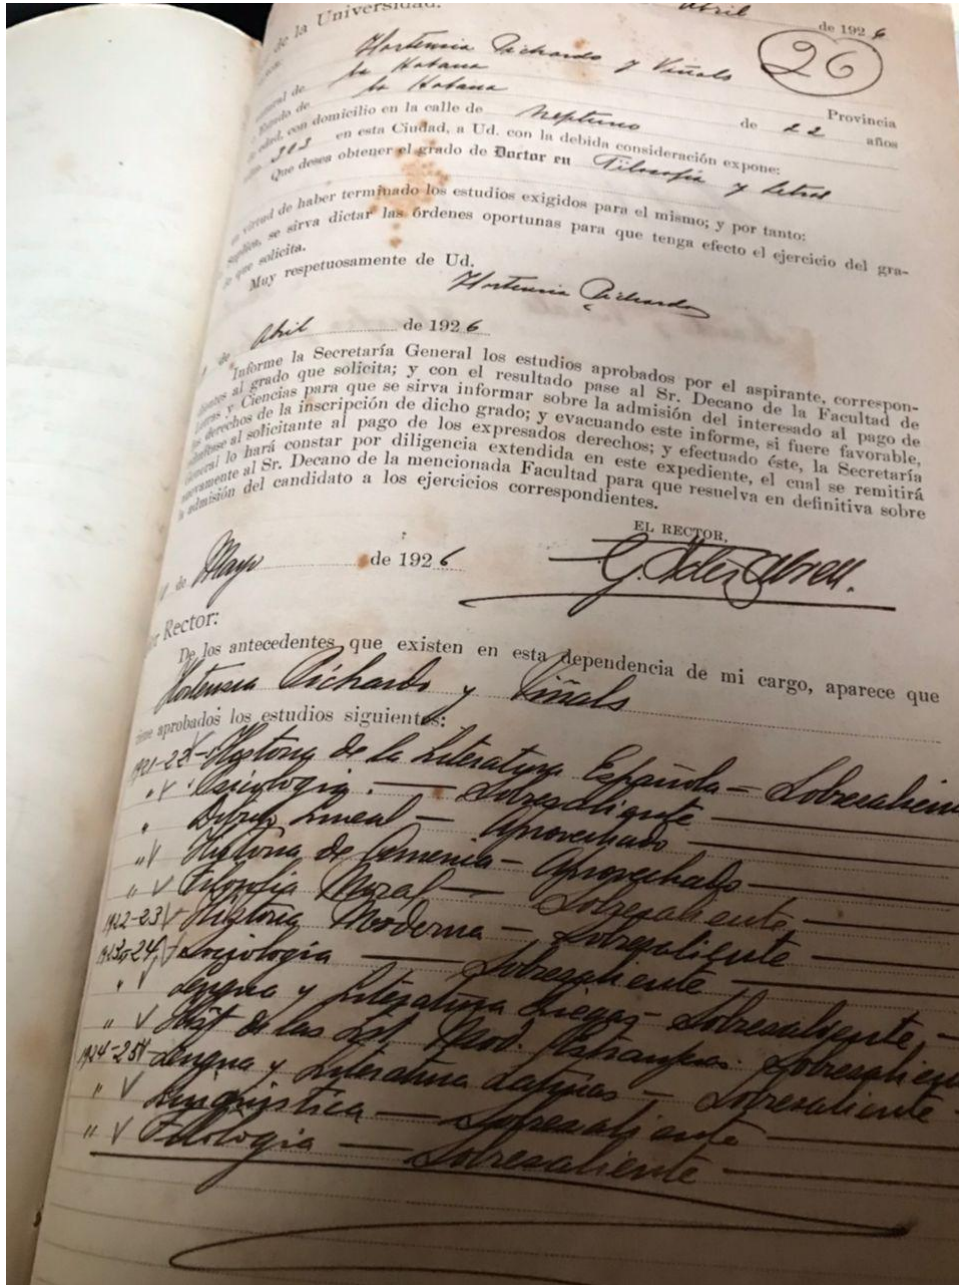 de la Universidad.
Abril de 1926
26
Hortensia Pichardo y Viñals
natural de la Habana Provincia
o Estado de la Habana de 22 años
de edad, con domicilio en la calle de Neptuno
303 en esta Ciudad, a Ud. con la debida consideración expone:
Que desea obtener el grado de Doctor en Filosofía y Letras
en virtud de haber terminado los estudios exigidos para el mismo; y por tanto:
Suplica, se sirva dictar las órdenes oportunas para que tenga efecto el ejercicio del gra-
do que solicita.
Muy respetuosamente de Ud.
Hortensia Pichardo
de Abril de 1926
Informe la Secretaría General los estudios aprobados por el aspirante, correspon-
dientes al grado que solicita; y con el resultado pase al Sr. Decano de la Facultad de
Letras y Ciencias para que se sirva informar sobre la admisión del interesado al pago de
los derechos de la inscripción de dicho grado; y evacuando este informe, si fuere favorable,
al solicitante al pago de los expresados derechos; y efectuado éste, la Secretaría
General lo hará constar por diligencia extendida en este expediente, el cual se remitirá
nuevamente al Sr. Decano de la mencionada Facultad para que resuelva en definitiva sobre
la admisión del candidato a los ejercicios correspondientes.
EL RECTOR,
de Mayo de 1926
Rector:
De los antecedentes que existen en esta dependencia de mi cargo, aparece que
Hortensia Pichardo y Viñals
tiene aprobados los estudios siguientes:
1921-22 V - Historia de la Literatura Española - Sobresaliente
" V Psicologia. — Sobresaliente
" Dibujo Lineal — Aprovechado
" V Historia de America - Aprovechado
" V Filosofia Moral — Sobresaliente
1922-23 V Historia Moderna - Sobresaliente
1923-24 Sociologia — Sobresaliente
" V Lengua y Literatura Griegas - Sobresaliente
" V Hist de las Lit. Mod. Extranjeras. Sobresaliente
1924-25 V Lengua y Literatura Latinas - Sobresaliente
" V Linguistica — Sobresaliente
" V Filologia — Sobresaliente